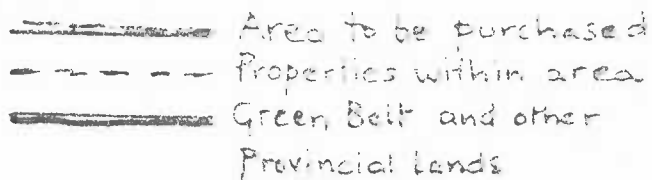 Area to be purchased
Properties within area
Green Belt and other
Provincial Lands